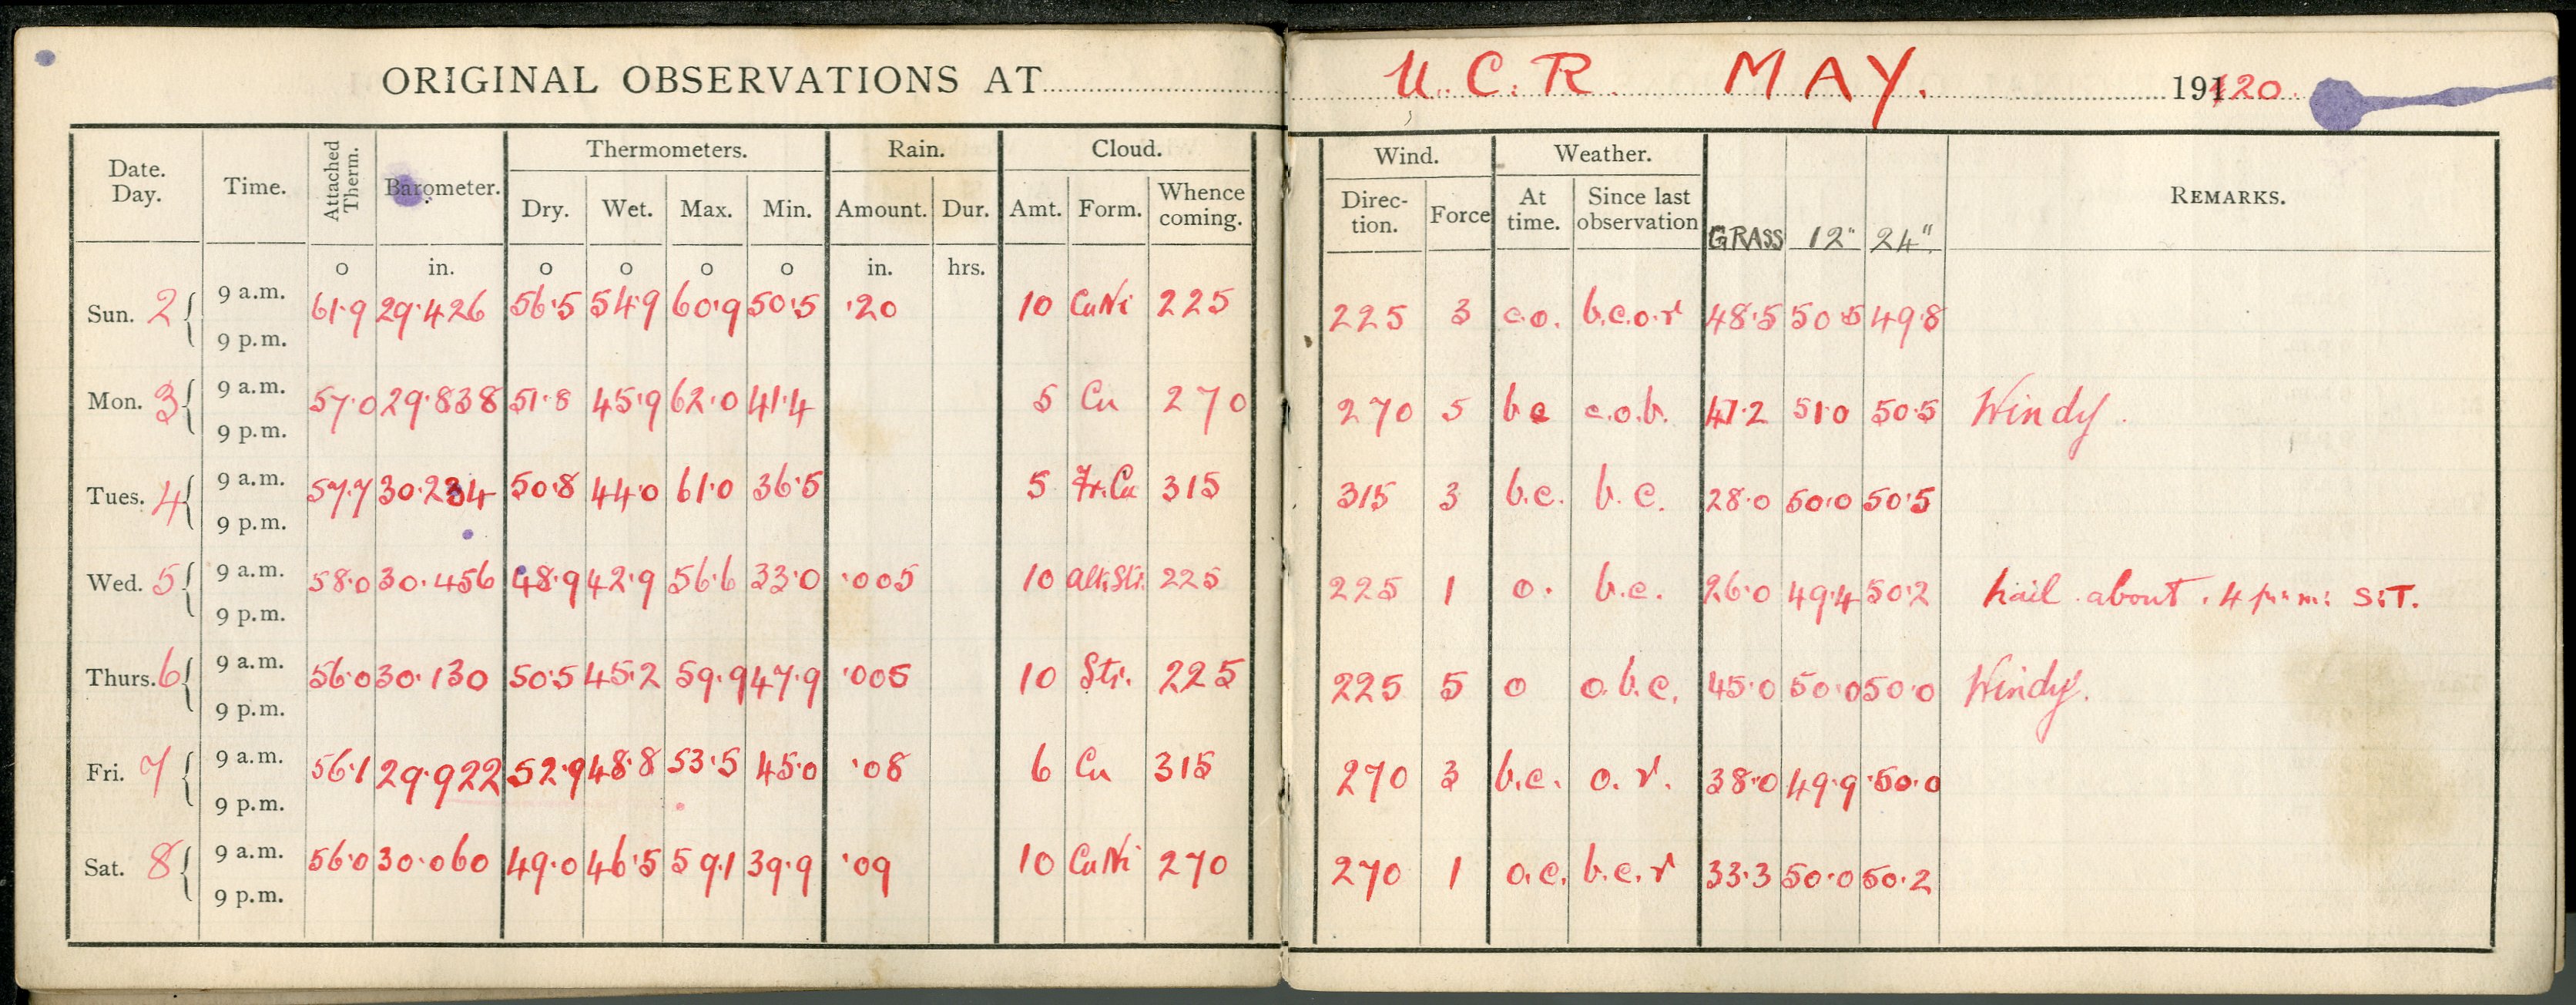 ORIGINAL OBSERVATIONS AT U.C.R. MAY. 1920.
Date. Day. Time. Attached Therm. Barometer. Thermometers. Rain. Cloud. Wind. Weather. REMARKS.
Dry. Wet. Max. Min. Amount. Dur. Amt. Form. Whence coming. Direc- tion. Force At time. Since last observation GRASS 12" 24"
o in. o o o o in. hrs.
Sun. 2 9 a.m. 61·9 29·426 56·5 54·9 60·9 50·5 ·20 10 CuNi 225 225 3 c.o. b.c.o.r 48·5 50·5 49·8
9 p.m.
Mon. 3 9 a.m. 57·0 29·838 51·8 45·9 62·0 41·4 5 Cu 270 270 5 bc c.o.b. 47·2 51·0 50·5 Windy.
9 p.m.
Tues. 4 9 a.m. 57·7 30·234 50·8 44·0 61·0 36·5 5 Fr.Cu 315 315 3 b.c. b.c. 28·0 50·0 50·5
9 p.m.
Wed. 5 9 a.m. 58·0 30·456 48·9 42·9 56·6 33·0 ·005 10 alt.Str. 225 225 1 o. b.c. 26·0 49·4 50·2 hail about 4 p.m. S.T.
9 p.m.
Thurs. 6 9 a.m. 56·0 30·130 50·5 45·2 59·9 47·9 ·005 10 Str. 225 225 5 o o.b.c. 45·0 50·0 50·0 Windy.
9 p.m.
Fri. 7 9 a.m. 56·1 29·922 52·9 48·8 53·5 45·0 ·08 6 Cu 315 270 3 b.c. o.r. 38·0 49·9 50·0
9 p.m.
Sat. 8 9 a.m. 56·0 30·060 49·0 46·5 59·1 39·9 ·09 10 CuNi 270 270 1 o.c. b.c.r 33·3 50·0 50·2
9 p.m.